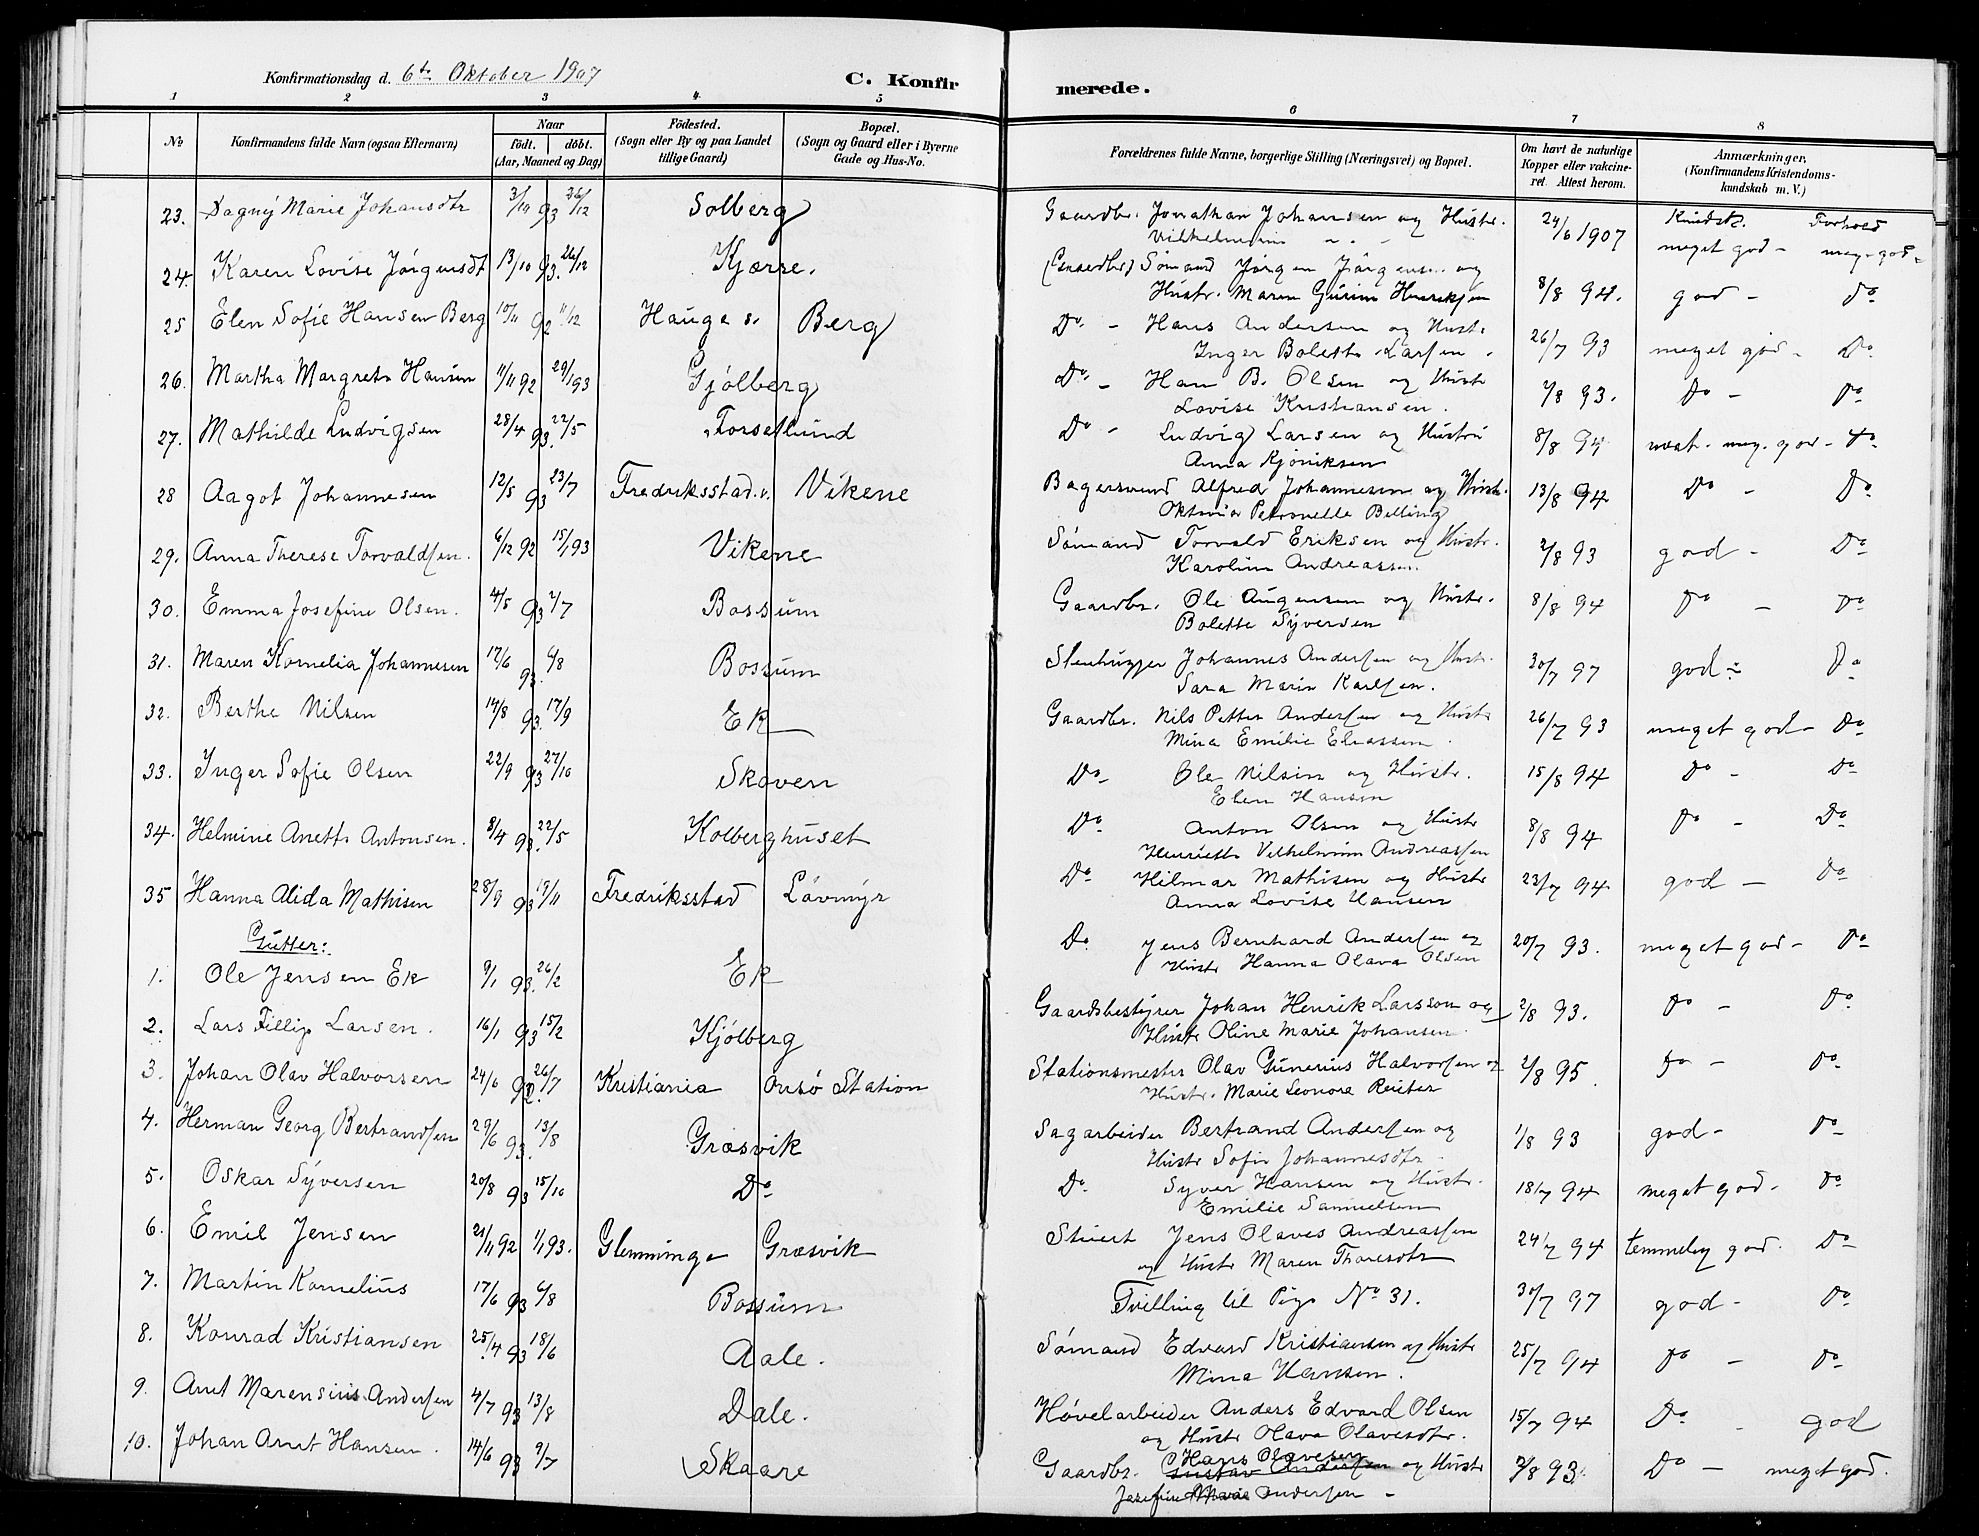 Konfirmationsdag d. 6te Oktober 1907
C. Konfirmerede.
1 2 3 4 5 6 7 8
No Konfirmandens fulde Navn (ogsaa Efternavn) Naar født. døbt. (Aar, Maaned og Dag) Födested. (Sogn eller By og paa Landet tillige Gaard) Bopæl. (Sogn og Gaard eller i Byerne Gade og Hus-No. Forældrenes fulde Navne, borgerlige Stilling (Næringsvei) og Bopæl. Om havt de naturlige Kopper eller vakcineret. Attest herom. Anmærkninger. (Konfirmandens Kristendomskundskab m. V.)
Kundsk. Forhold
23. Dagny Marie Johansdtr 3/10 93 26/12 Solberg Gaardbr. Jonathan Johansen og Hustr. 24/6 1907 meget god - meg. god -
24. Karen Lovise Jörgensdt 13/10 93. 26/12 Kjærre. Sømand Jörgen og
Hustr. Maren Gurine Henriksen 8/8 94. god - Do
25 Elen Sofie Hansen Berg 10/11 92 11/12 Hauge s. Berg Do - Hans Andersen og Hustr
Inger Bolette Larsen. 26/7 93 meget god - Do
26. Martha Margrete Hansen 11/11 92 29/1 93 Gjölberg Do - Han B. Olsen og Hustr
Lovise Kristiansen. 2/8 93. Do - Do
27. Mathilde Ludvigsen 28/4 93. 22/5 Torsetlund Do - Ludvig Larsen og Hustru
Anna Kjöniksen 8/8 94 næst. meg. god - Do
28 Aagot Johannesen 12/5 93 23/7 Fredriksstad. v. Vikene Bagersvend Alfred Johannesen og Hustr.
Oktavia Petronelle Belling 13/8 94 Do - Do
29. Anna Therese Torvaldsen. 6/12 92 15/1 93 Vikene Sømand Torvald Eriksen og Hustr.
Karoline Andreassen. 2/8 93 god - Do
30. Emma Josefine Olsen. 4/5 93 2/7 Bossum Gaardbr. Ole Augensen og Hustr.
Bolette Syversen 8/8 94 Do - Do
31. Maren Kornelia Johannesen 17/6 93. 6/8 Bossum Stenhugger Johannes Andersen og Hustr.
Sara Marin Karlsen. 30/7 97 god - Do
32. Berthe Nilsen 14/8 93. 17/9 Ek Gaardbr. Nils Petter Andersen og Hustr
Mina Emilie Eliassen. 26/7 93 meget god - Do
33. Inger Sofie Olsen 22/9 93 27/10 Skoven Do - Ole Nilsen og Hustr.
Elen Hansen 15/8 94 Do - Do
34. Helmine Anette Antonsen. 8/4 93. 22/5 Kolberghuset Do Anton Olsen og Hustr
Henriette Vilhelmine Andreassen 8/8 94 Do - Do
35 Hanna Alida Mathisen 28/9 93 19/11 Fredriksstad Lövmyr Do Hilmar Mathisen og Hustr
Anna Lovise Hansen 23/7 94 god - Do
Gutter:
1. Ole Jensen Ek 9/1 93. 26/2 Ek Do Jens Bernhard Andersen og
Hustr Hanna Olava Olsen 20/7 93. meget god - Do
2. Lars Fillip Larsen. 16/1 93 15/2 Kjölberg Gaardsbestyrer Johan Henrik Larsson og
Hustr Oline Marie Johansen. 2/8 93. Do - Do
3. Johan Olav Halvorsen 24/6 92. 26/7 Kristiania Onsö Station Stationsmester Olav Gunerius Halvorsen og
Hustr. Marie Leonora Reiter 2/8 95. Do - Do
4. Herman Georg Bertrandsen 29/6 93. 13/8 Græsvik Sagarbeider Bertrand Andersen og
Hustr Sofie Johannesdtr. 1/8 93 god - Do
5. Oskar Syversen 20/8 93 15/10 Do Do Syver Hansen og Hustr.
Emilie Samuelsen 18/7 94 meget god. Do
6. Emil Jensen 21/11 92 1/1 93. Glemminge Græsvik Stuert Jens Olaves Andreassen
og Hustr Maren Thoresdtr 24/7 94 temmelig god. Do
7. Martin Kornelius 17/6 93 6/8 Bossum Tvilling til Pige No 31. 30/7 97 god - Do
8. Konrad Kristiansen 25/4 93 18/6 Aale. Sømand Edvard Kristiansen og Hustr
Mina Hansen. 25/7 94 Do - Do
9. Arnt Marensius Andersen 4/7 93 13/8 Dale. Høvelarbeider Anders Edvard Olsen
og Hustr Olava Olavesdtr. 15/7 94 Do - god
10. Johan Arnt Hansen. 14/6 93 9/7 Skaare Gaardbr. Hans Olavesen Gustav Andersen og Hustr
Josefine Marie Andersen - 2/8 93. Do - meget god.